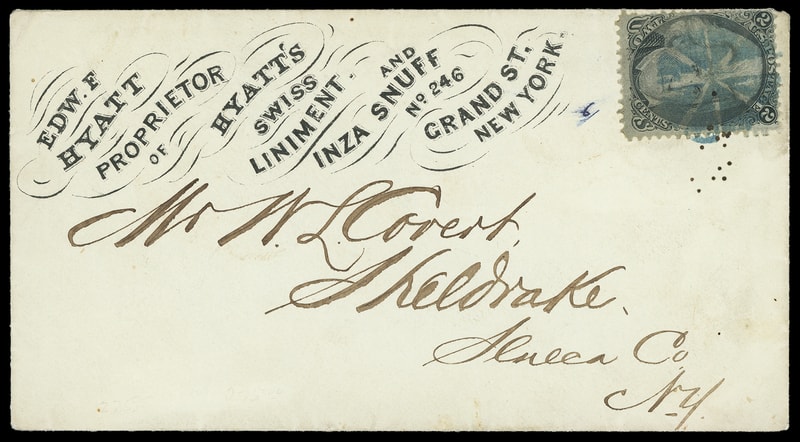 EDW. F
HYATT
PROPRIETOR
OF
HYATT'S
SWISS
LINIMENT.
AND
INZA SNUFF
No. 246
GRAND ST.
NEW YORK.
6
2 2
Mr W. L. Covert,
Sheldrake.
Seneca Co
N.Y.